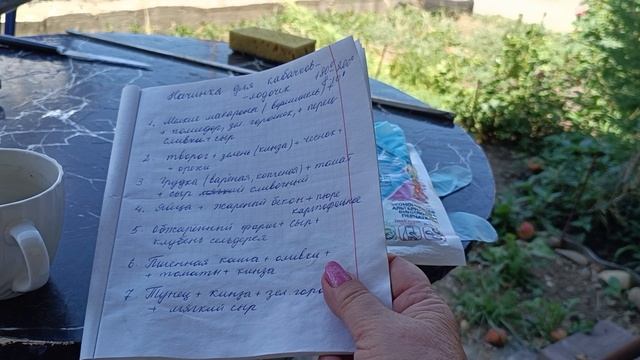 Начинка для кабачков-
-лодочек
1. Мелкие макароны (вермишель)
+ помидор, зел. горошек, + перец
сливки + сыр
2 творог + зелень (кинза) + чеснок +
+ орехи
3 Грудка (варёная, копчёная) + томат
+ сыр сливочный
4. Яйца + жареный бекон + пюре
картофельное
5. Обжаренный фарш + сыр +
клубень сельдерея
6. Пшённая каша + оливки +
+ томаты + кинза
7 Тунец + кинза + зел. горо
+ мягкий сыр